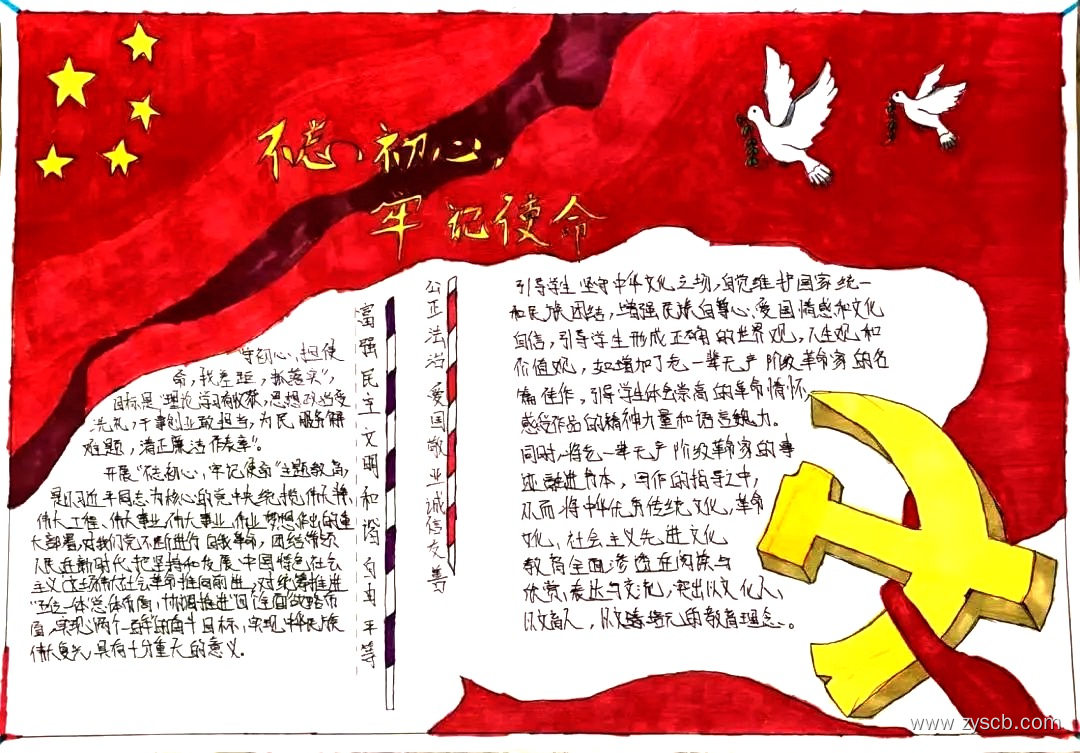 不忘初心，
牢记使命
守初心、担使
命，找差距，抓落实”，
目标是“理论学习有收获，思想政治受
洗礼，干事创业敢担当，为民服务解
难题，清正廉洁作表率”。
开展“不忘初心，牢记使命”主题教育，
是以习近平同志为核心的党中央统揽伟大斗争，
伟大工程、伟大事业，伟大事业，伟大梦想作出的重
大部署，对我们党不断进行自我革命，团结带领
人民在新时代把坚持和发展中国特色社会
主义这场伟大社会革命推向前进，对统筹推进
“五位一体”总体布局，协调推进“四个全面”战略布
局，实现“两个一百年”的奋斗目标，实现中华民族
伟大复兴，具有十分重大的意义。
富强民主文明和谐自由平等
公正法治爱国敬业诚信友善
引导学生坚守中华文化之场，自觉维护国家统一
和民族团结，增强民族自尊心、爱国情感和文化
自信，引导学生形成正确的世界观，人生观和
价值观，如增加了老一辈无产阶级革命家的名
篇佳作，引导学生体会崇高的革命情怀，
感受作品的精神力量和语言魅力。
同时，将老一辈无产阶级革命家的事
迹融进书本，写作的指导之中，
从而将中华优秀传统文化，革命
文化、社会主义先进文化
教育全面渗透在阅读与
欣赏，表达与交流，突出以文化人，
以文育人，以文铸培元的教育理念。
www.zyscb.com